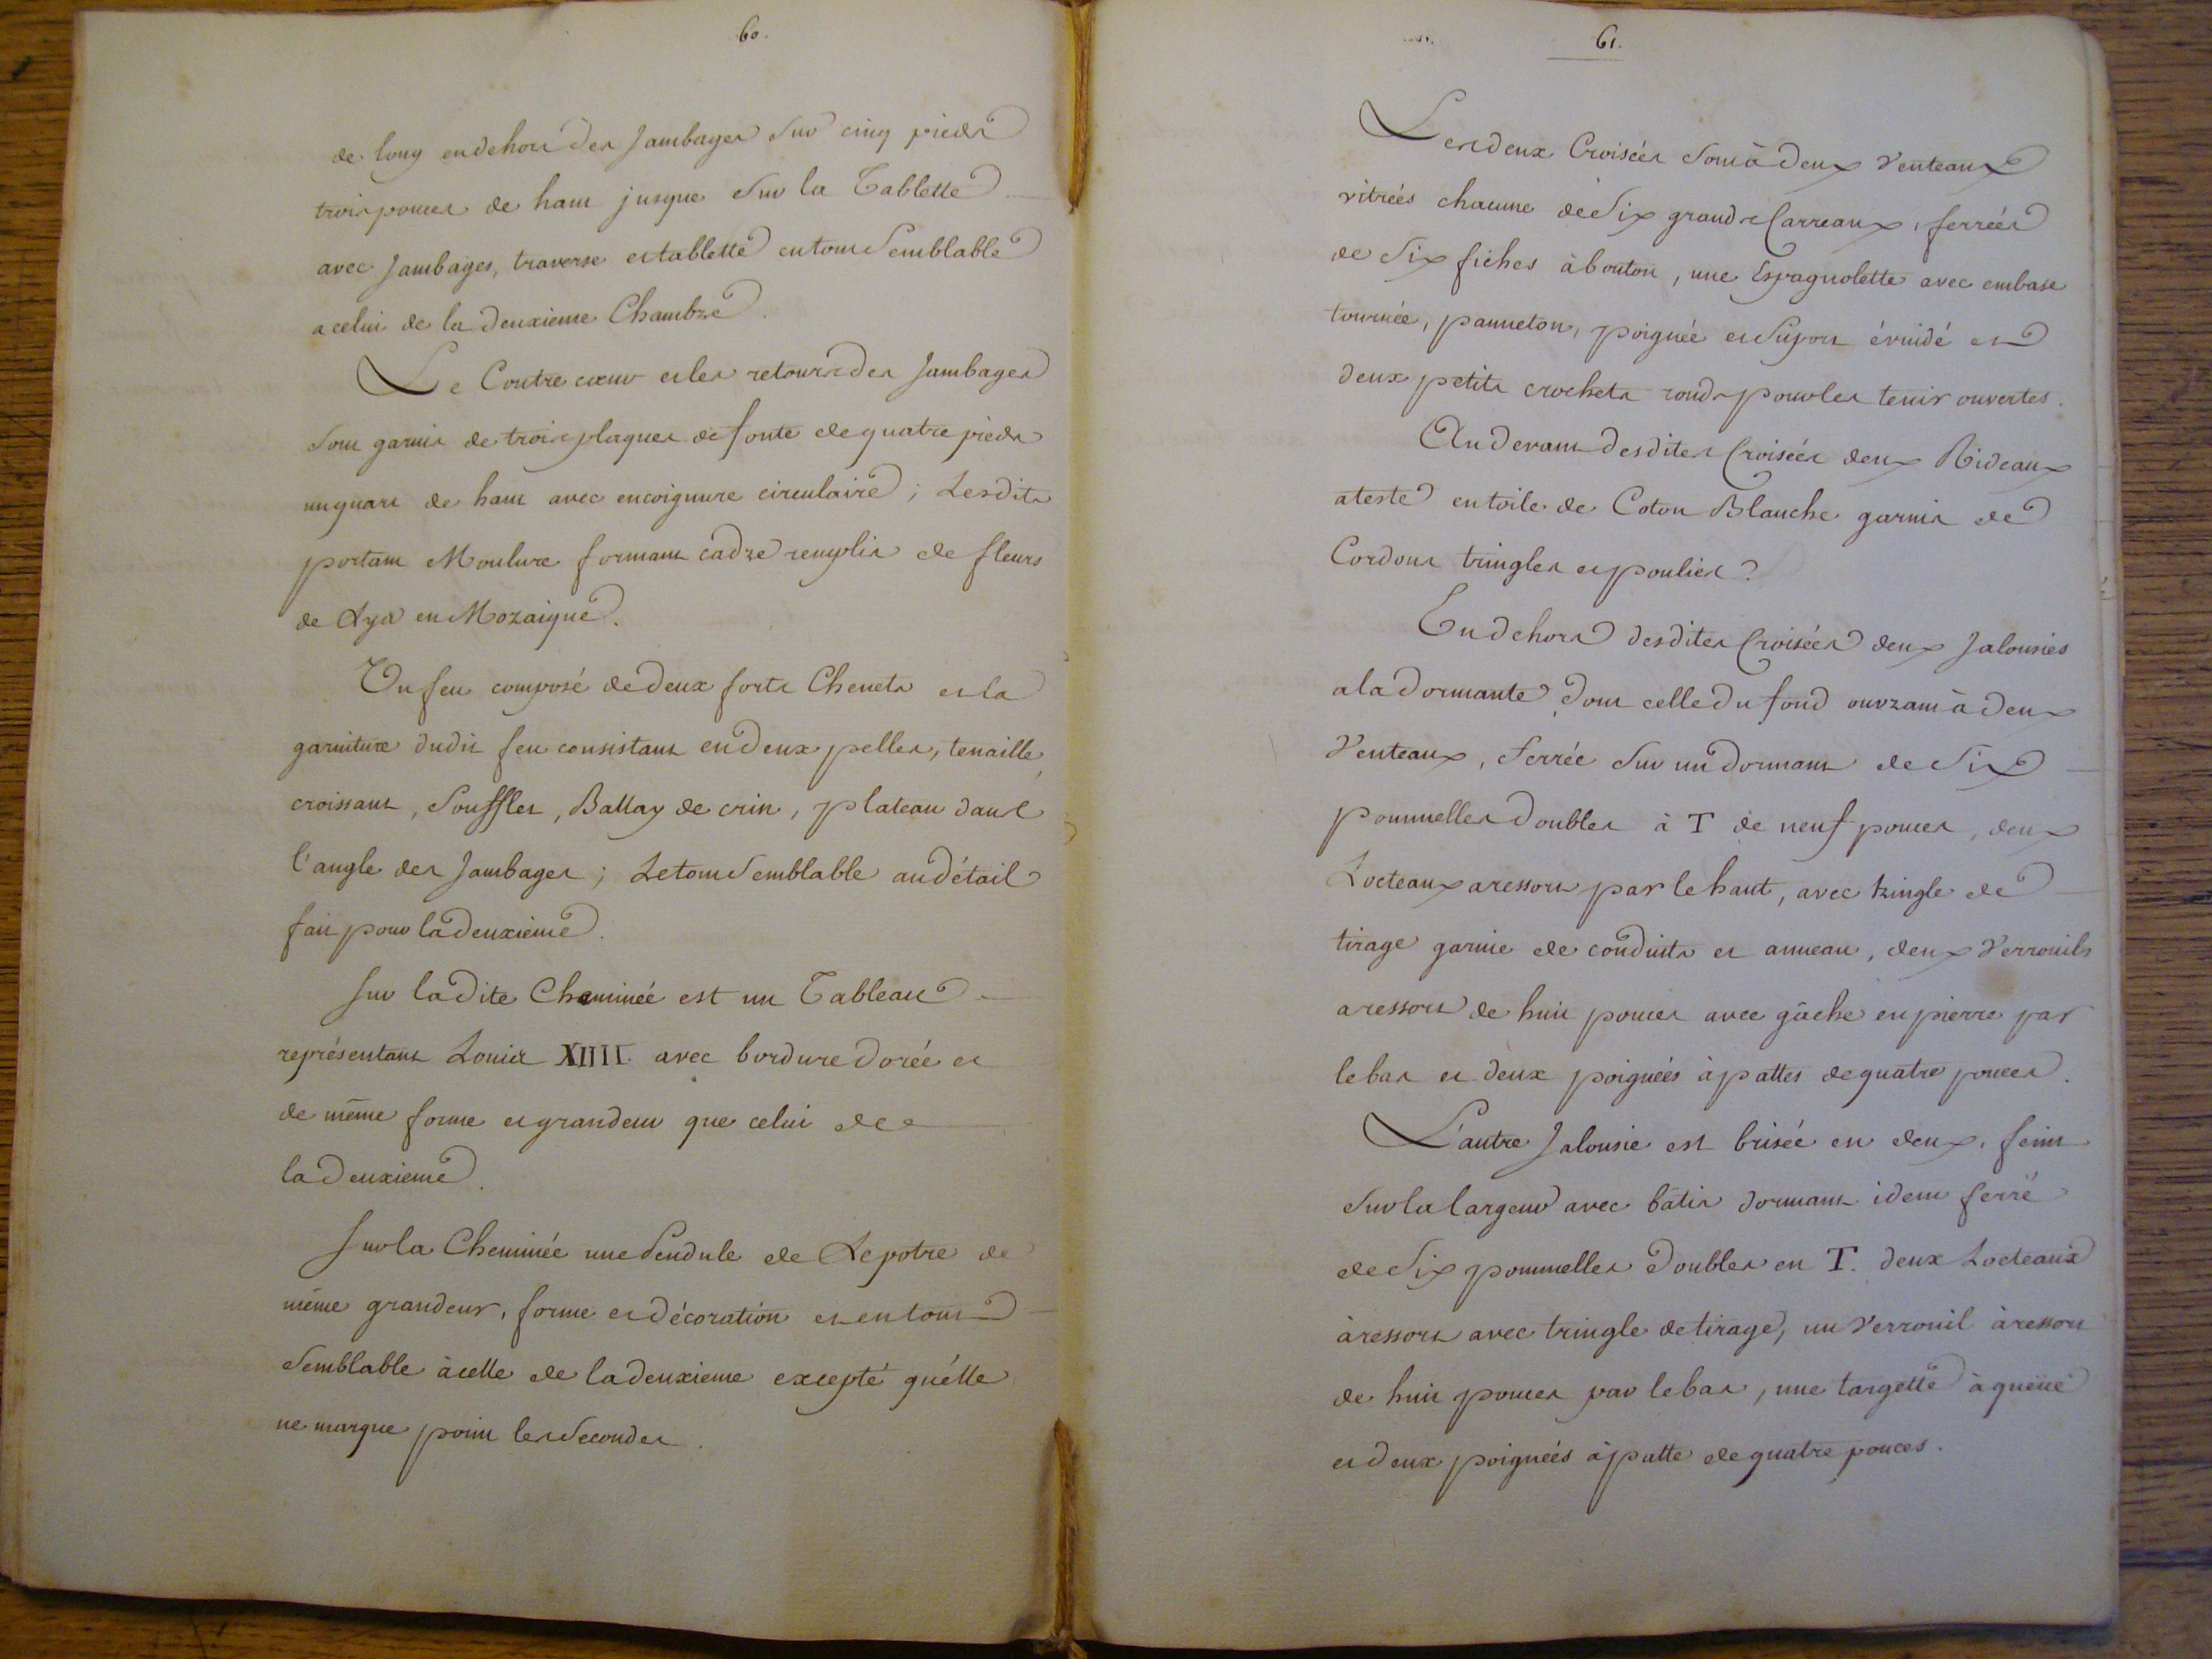 60.
de long en dehors des Jambages Sur cinq pieds
trois pouces de haut jusque Sur la Tablette
avec Jambages, traverse et tablette en tout Semblable
a celui de la deuxieme Chambre.
Le Contre cœur et les retours des Jambages
Sont garnis de trois plaques de fonte de quatre pieds
un quart de haut avec encoignure circulaire ; Lesdits
portant Moulure formant cadre remplis de fleurs
de Lys en Mozaique.
Un feu composé de deux forts Chenets et la
garniture dudit feu consistant en deux pelles, tenaille,
croissant, Soufflet, Ballay de crin, plateau dans
l'angle des Jambages ; Le tout Semblable au détail
fait pour la deuxieme.
Sur ladite Cheminée est un Tableau
représentant Louis XIIII. avec bordure dorée et
de même forme et grandeur que celui de
la deuxieme.
Sur la Cheminée une Pendule de Lepotre de
même grandeur, forme et décoration et en tout
Semblable à celle de la deuxieme excepté qu'élle
ne marque point les Secondes.
61.
Les deux Croisées Sont à deux Venteaux
vitrées chacune de Six grands Carreaux, ferrées
de Six fiches à bouton, une Espagnolette avec embase
tournée, panneton, poignée et Suport évuidé et
deux petits crochets ronds pour les tenir ouvertes.
Au devant desdites Croisées deux Rideaux
a teste en toile de Coton Blanche garnis de
Cordons tringles et poulies.
En dehors desdites Croisées deux Jalousies
a la dormante dont celle du fond ouvrant à deux
Venteaux, ferrée Sur un dormant de Six
pommelles doubles à T de neuf pouces, deux
Locteaux a ressort par le haut, avec tringle de
tirage garnie de conduits et anneau, deux Verrouils
a ressort de huit pouces avec gâche en pierre par
le bas et deux poignées à pattes de quatre pouces.
L'autre Jalousie est brisée en deux, feint
Sur la largeur avec bâtis dormant idem ferré
de Six pommelles doubles en T. deux Locteaux
à ressort avec tringle de tirage, un Verrouil à ressort
de huit pouces par le bas, une targette à queüe
et deux poignées à patte de quatre pouces.